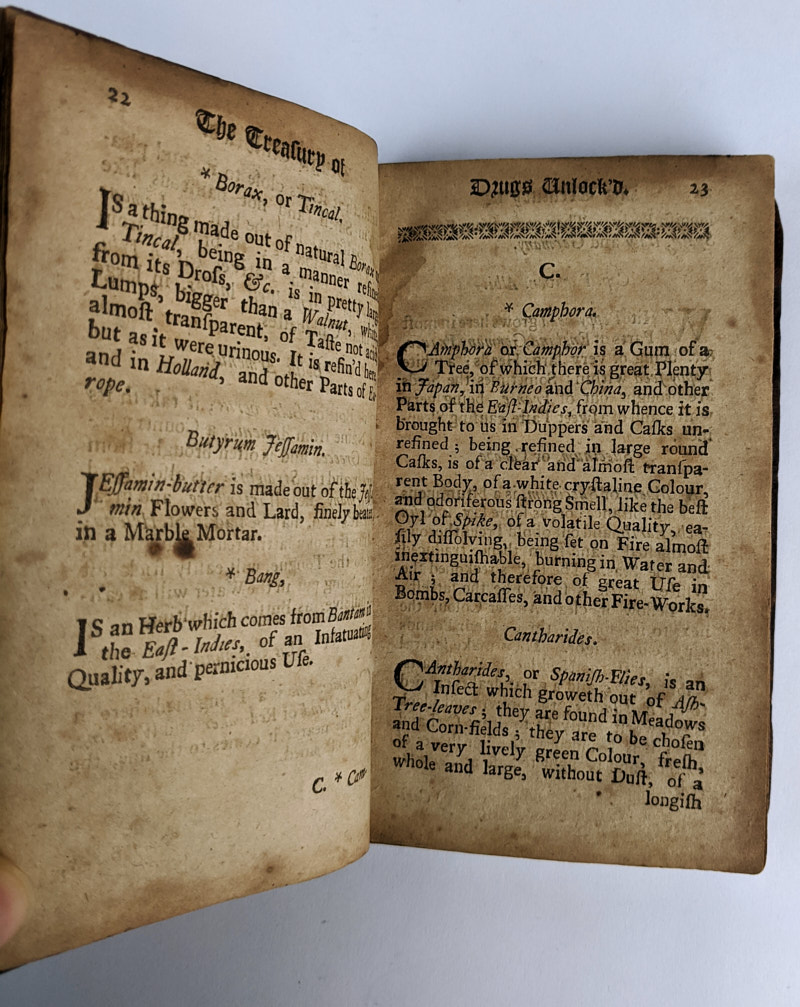 22
The Treaſury of
* Borax, or Tincal,
IS a thing made out of natural Borax
Tincal, being in a manner refin'd
from its Droſs, &c. is in pretty large
Lumps, bigger than a Walnut, white
almoſt tranſparent, of Taſte not acid
but as it were urinous. It is refin'd here,
and in Holland, and other Parts of Eu-
rope.
Butyrum Jeſſamin.
JEſſamin-butter is made out of the Jeſſ-
min Flowers and Lard, finely beaten
in a Marble Mortar.
* Bang,
IS an Herb which comes from Bantam in
the Eaſt-Indies, of an Infatuating
Quality, and pernicious Uſe.
C. * Cam-
Drugs Unlock'd.
23
C.
* Camphora.
CAmphora or Camphor is a Gum of a
Tree, of which there is great Plenty
in Japan, in Burneo and China, and other
Parts of the Eaſt-Indies, from whence it is
brought to us in Duppers and Casks un-
refined; being refined in large round
Casks, is of a clear and almoſt tranſpa-
rent Body, of a white cryſtaline Colour,
and odoriferous ſtrong Smell, like the beſt
Oyl of Spike, of a volatile Quality, ea-
ſily diſſolving, being ſet on Fire almoſt
inextinguiſhable, burning in Water and
Air; and therefore of great Uſe in
Bombs, Carcaſſes, and other Fire-Works.
Cantharides.
CAntharides, or Spaniſh-Flies, is an
Inſect which groweth out of Aſh-
Tree-leaves; they are found in Meadows
and Corn-fields; they are to be choſen
of a very lively green Colour, freſh,
whole and large, without Duſt, of a
longiſh